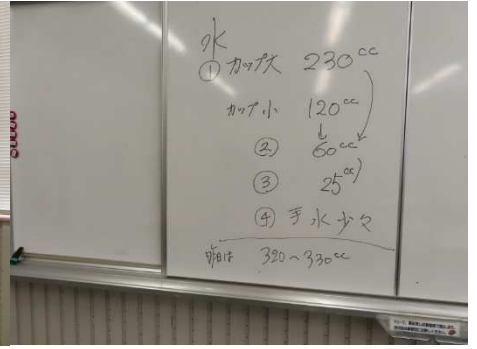 水
① カップ大 230cc
カップ小 120cc
↓
② 60cc
③ 25cc
④ 手水少々
昨日は 320〜330cc